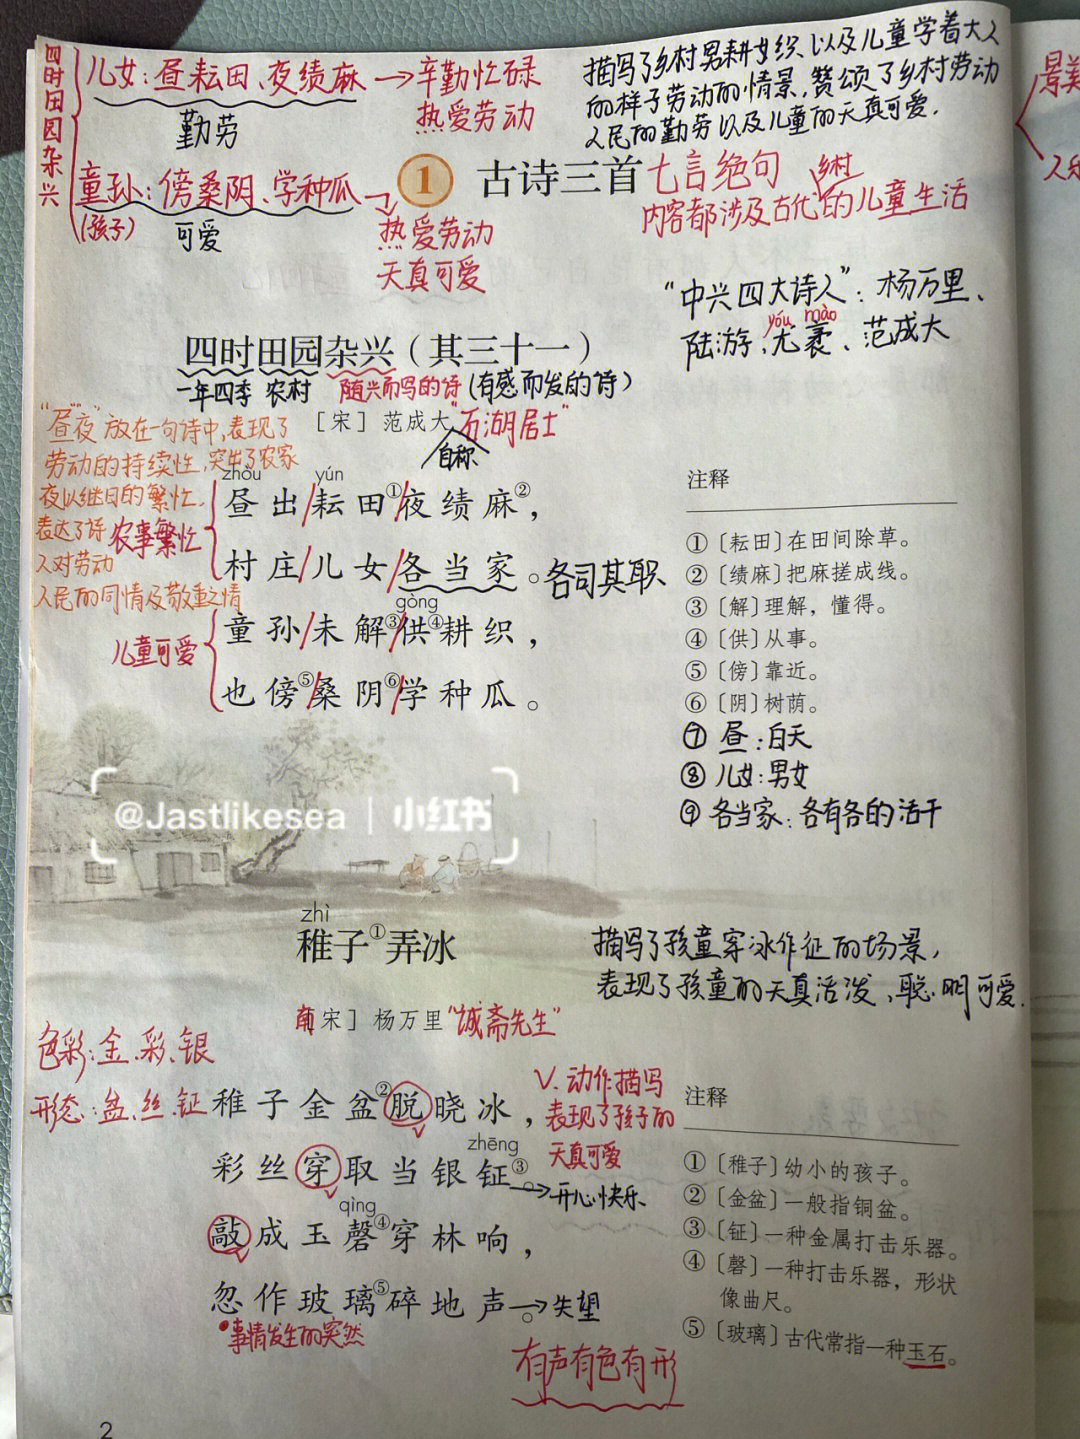 四时田园杂兴
儿女：昼耘田、夜绩麻→辛勤忙碌
勤劳
热爱劳动
童孙：傍桑阴、学种瓜→
(孩子)
可爱
热爱劳动
天真可爱
描写了乡村男耕女织、以及儿童学着大人
的样子劳动的情景，赞颂了乡村劳动
人民的勤劳以及儿童的天真可爱.
1 古诗三首 七言绝句
乡村
内容都涉及古代的儿童生活
“中兴四大诗人”：杨万里、
yóu mào
陆游、尤袤、范成大
四时田园杂兴（其三十一）
一年四季 农村 随兴而写的诗(有感而发的诗)
［宋］范成大 “石湖居士”
自称
“昼”“夜”放在一句诗中,表现了
劳动的持续性,突出了农家
夜以继日的繁忙,
表达了诗
人对劳动
人民的同情及敬重之情
农事繁忙
儿童可爱
zhòu yún
昼出/耘田①/夜绩麻②，
村庄/儿女/各当家。各司其职、
gòng
童孙/未解③/供④耕织，
也傍⑤/桑阴⑥/学种瓜。
注释
①〔耘田〕在田间除草。
②〔绩麻〕把麻搓成线。
③〔解〕理解，懂得。
④〔供〕从事。
⑤〔傍〕靠近。
⑥〔阴〕树荫。
⑦ 昼：白天
⑧ 儿女：男女
⑨ 各当家：各有各的活干
@Jastlikesea｜小红书
zhì
稚子①弄冰
描写了孩童穿冰作征的场景,
表现了孩童的天真活泼、聪明可爱.
南宋］杨万里 “诚斋先生”
色彩：金、彩、银
形态：盆、丝、钲
稚子金盆②脱晓冰，
zhēng
彩丝穿取当银钲③。→开心快乐
qìng
敲成玉磬④穿林响，
忽作玻璃⑤碎地声。→失望
事情发生的突然
V. 动作描写
表现了孩子的
天真可爱
有声有色有形
注释
①〔稚子〕幼小的孩子。
②〔金盆〕一般指铜盆。
③〔钲〕一种金属打击乐器。
④〔磬〕一种打击乐器，形状
像曲尺。
⑤〔玻璃〕古代常指一种玉石。
2
景美